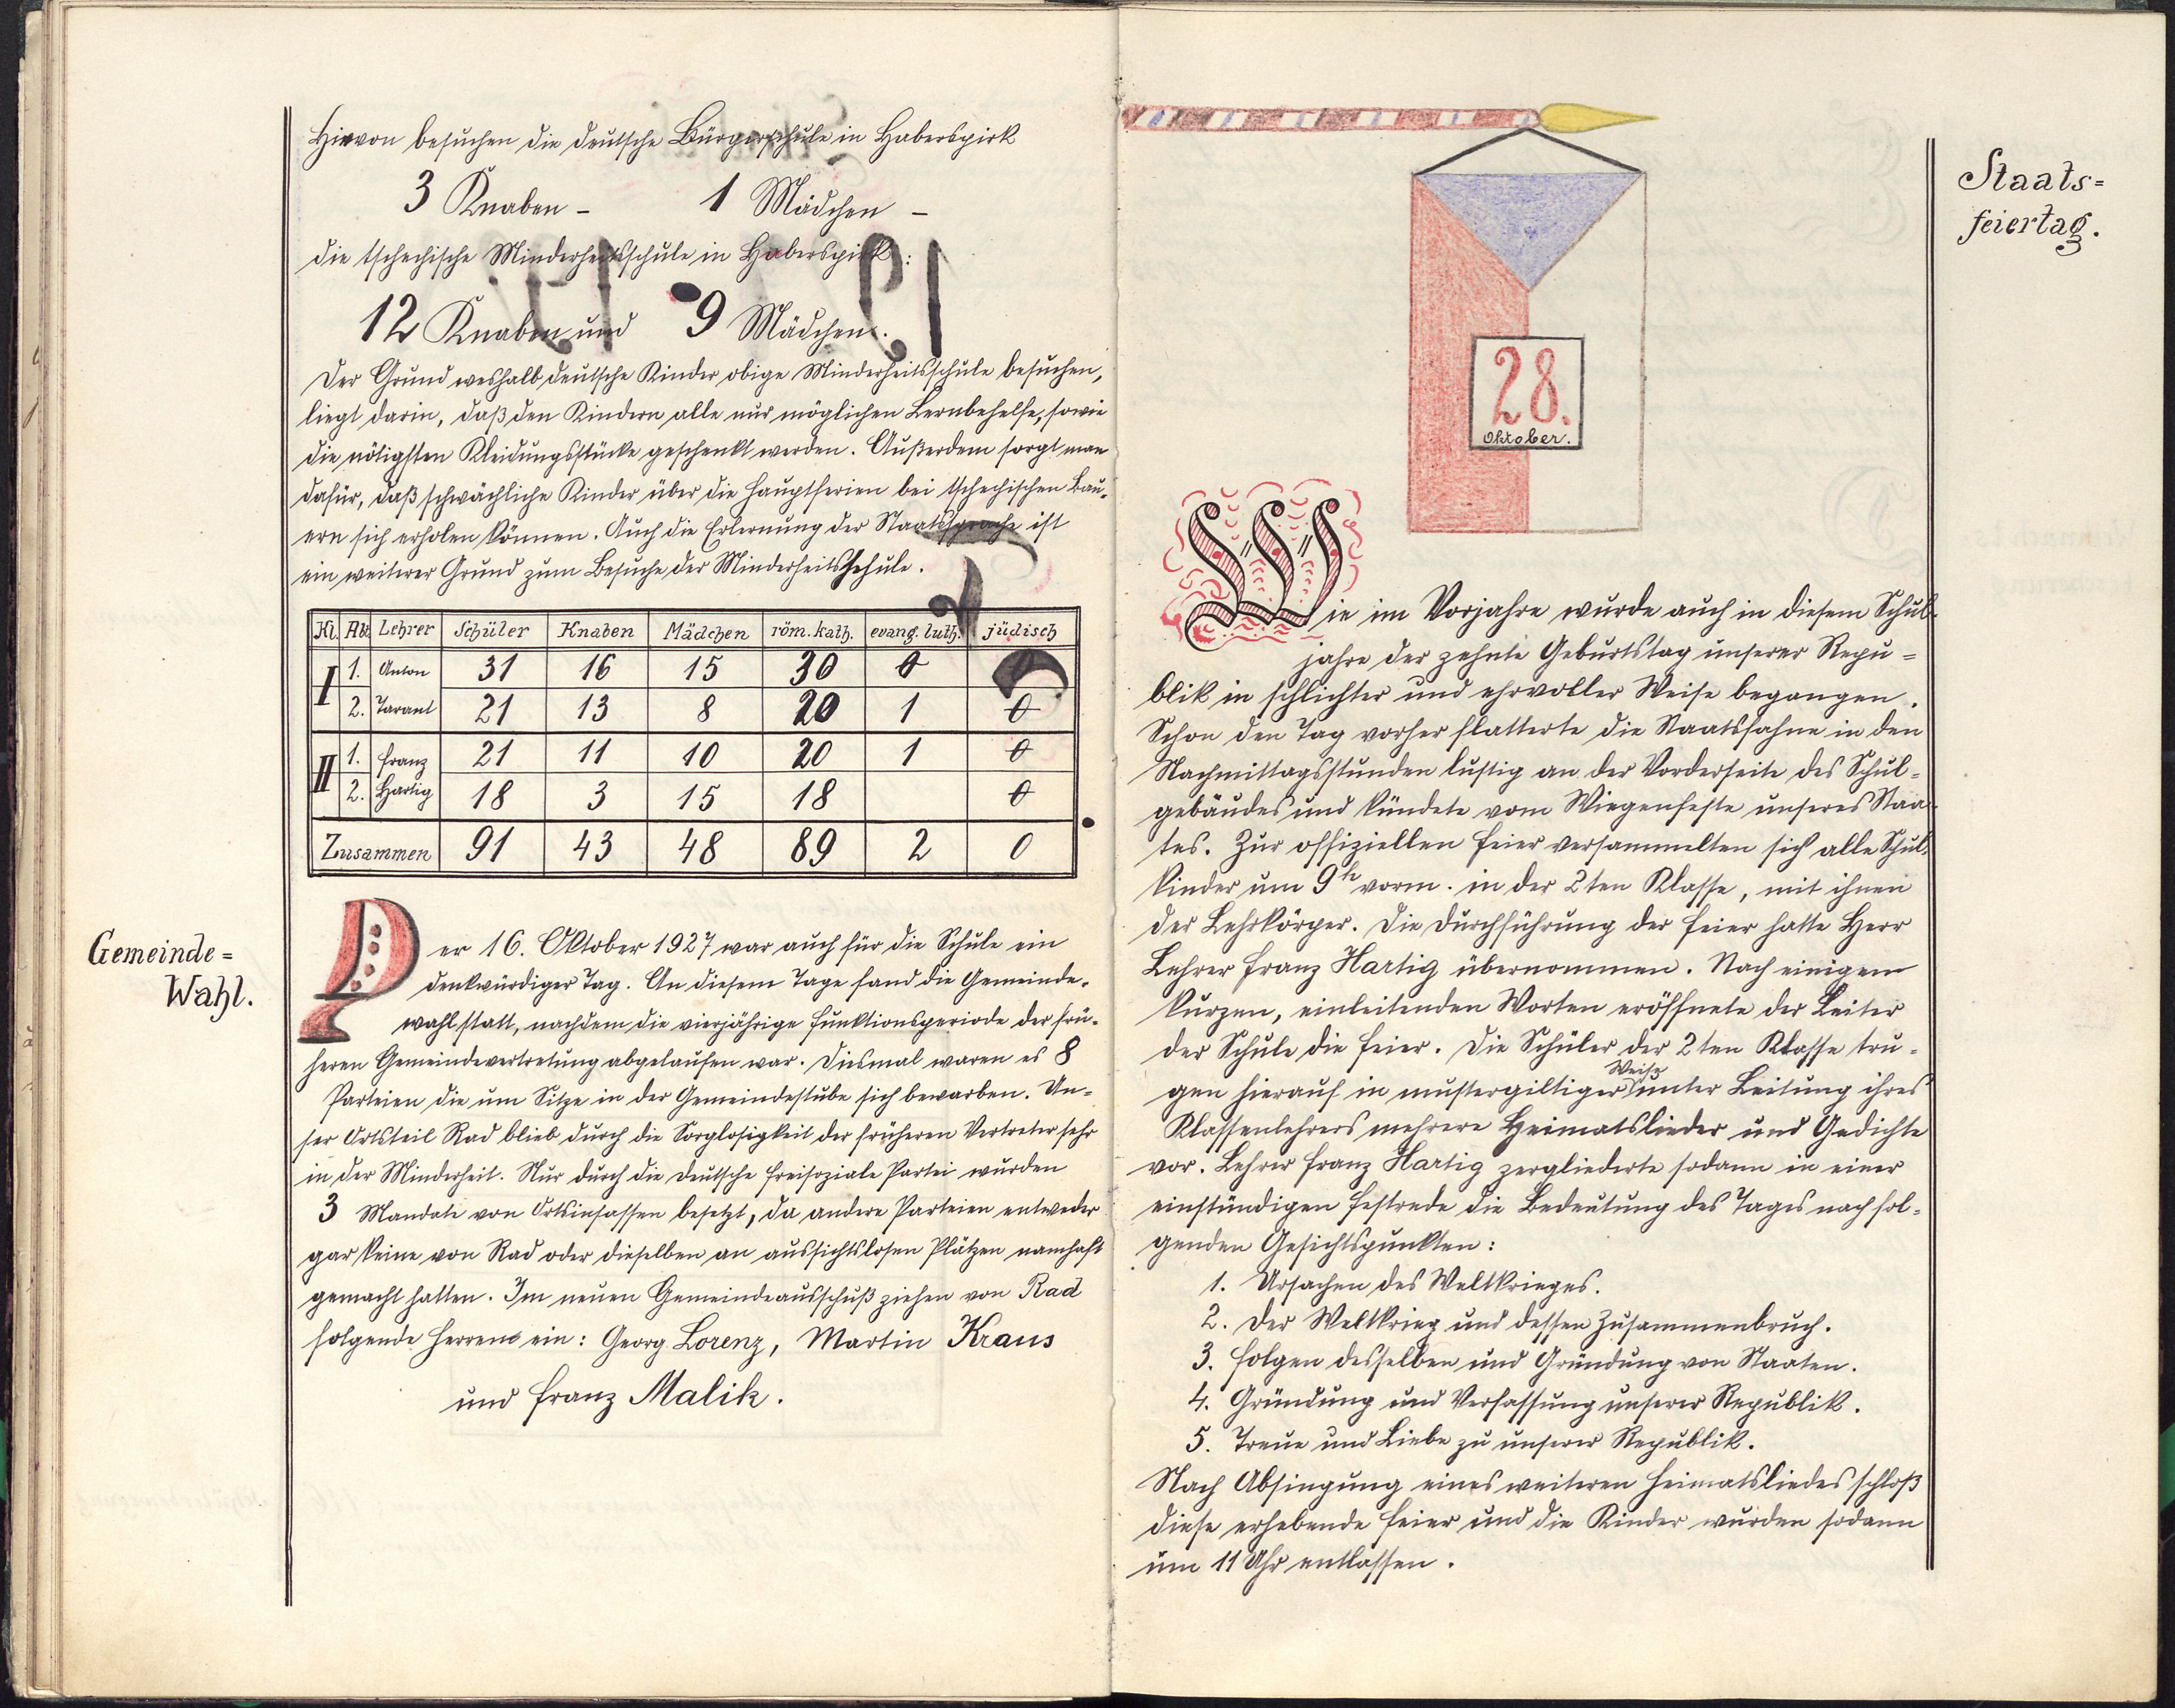 Hievon besuchen die deutsche Bürgerschule in Haberspirk
3 Knaben - 1 Mädchen -
die tschechische Minderheitsschule in Haberspirk:
12 Knaben und 9 Mädchen.
Der Grund weshalb deutsche Kinder obige Minderheitsschule besuchen,
liegt darin, daß den Kindern alle nur möglichen Lernbehelfe, sowie
die nötigsten Kleidungsstücke geschenkt werden. Außerdem sorgt man
dafür, daß schwächliche Kinder über die Hauptferien bei tschechischen Bau-
ern sich erholen können. Auch die Erlernung der Staatssprache ist
ein weiterer Grund zum Besuche der Minderheitsschule.
Kl. Abt. Lehrer Schüler Knaben Mädchen röm. kath. evang. luth. jüdisch
I 1. Anton 31 16 15 30 0
2. Tarant 21 13 8 20 1 0
II 1. Franz 21 11 10 20 1 0
2. Hartig 18 3 15 18 0
Zusammen 91 43 48 89 2 0
Gemeinde=
Wahl.
Der 16. Oktober 1927 war auch für die Schule ein
denkwürdiger Tag. An diesem Tage fand die Gemeinde-
wahl statt, nachdem die vierjährige Funktionsperiode der frü-
heren Gemeindevertretung abgelaufen war. Diesmal waren es 8
Parteien die um Sitze in der Gemeindestube sich bewarben. Un-
ser Ortsteil Rad blieb durch die Sorglosigkeit der früheren Vertreter sehr
in der Minderheit. Nur durch die deutsche freisoziale Partei wurden
3 Mandate von Ortsinsassen besetzt, da andere Parteien entweder
gar keine von Rad oder dieselben an aussichtslosen Plätzen namhaft
gemacht hatten. Im neuen Gemeindeausschuß ziehen von Rad
folgende Herren ein: Georg Lorenz, Martin Kraus
und Franz Malik.
Staats=
feiertag.
28.
Oktober.
Wie im Vorjahre wurde auch in diesem Schul-
jahre der zehnte Geburtstag unserer Repu=
blik in schlichter und ehrvoller Weise begangen.
Schon den Tag vorher flatterte die Staatsfahne in den
Nachmittagsstunden lustig an der Vorderseite des Schul=
gebäudes und kündete vom Wiegenfeste unseres Staa-
tes. Zur offiziellen Feier versammelten sich alle Schul-
kinder um 9h vorm. in der 2ten Klasse, mit ihnen
der Lehrkörper. Die Durchführung der Feier hatte Herr
Lehrer Franz Hartig übernommen. Nach einigen
kurzen, einleitenden Worten eröffnete der Leiter
der Schule die Feier. Die Schüler der 2ten Klasse tru=
gen hierauf in mustergiltiger Weise unter Leitung ihres
Klassenlehrers mehrere Heimatslieder und Gedichte
vor. Lehrer Franz Hartig zergliederte sodann in einer
einstündigen Festrede die Bedeutung des Tages nach fol=
genden Gesichtspunkten:
1. Ursachen des Weltkrieges.
2. Der Weltkrieg und dessen Zusammenbruch.
3. Folgen desselben und Gründung von Staaten.
4. Gründung und Verfassung unserer Republik.
5. Treue und Liebe zu unserer Republik.
Nach Absingung eines weiteren Heimatsliedes schloß
diese erhebende Feier und die Kinder wurden sodann
um 11 Uhr entlassen.